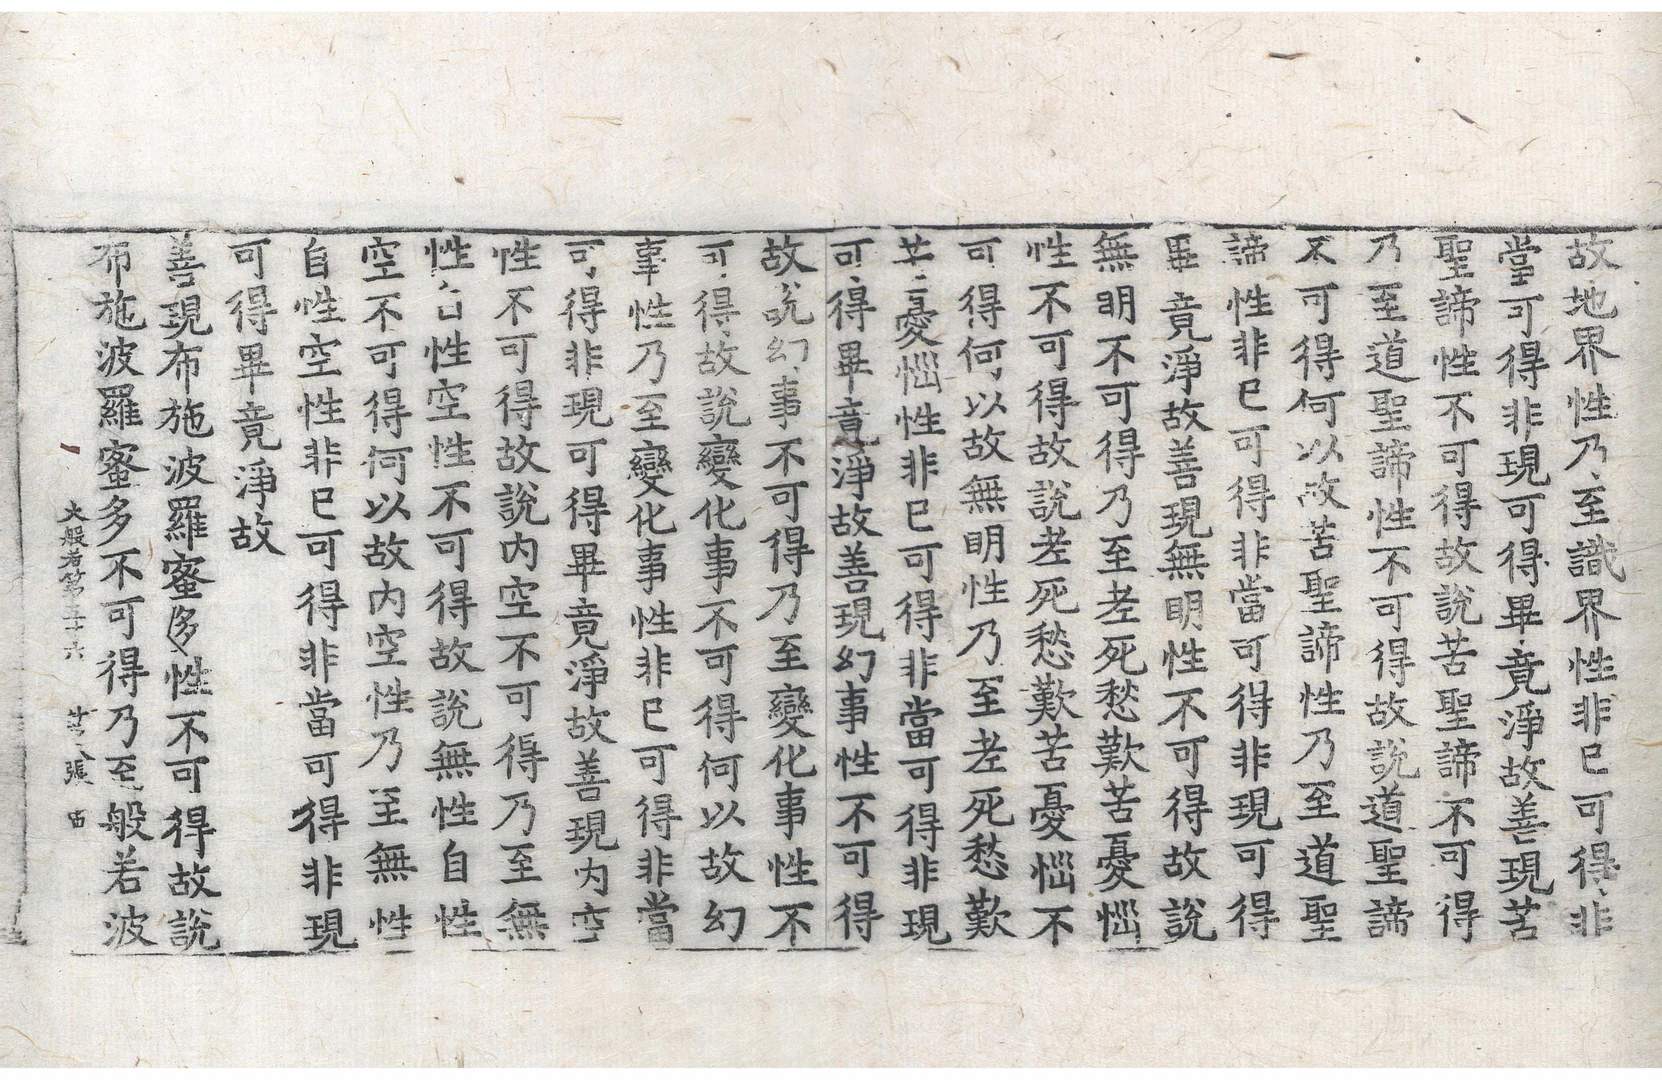 故地界性乃至識界性非已可得非
當可得非現可得畢竟淨故善現苦
聖諦性不可得故說苦聖諦不可得
乃至道聖諦性不可得故說道聖諦
不可得何以故苦聖諦性乃至道聖
諦性非已可得非當可得非現可得
畢竟淨故善現無明性不可得故說
無明不可得乃至老死愁歎苦憂惱
性不可得故說老死愁歎苦憂惱不
可得何以故無明性乃至老死愁歎
苦憂惱性非已可得非當可得非現
可得畢竟淨故善現幻事性不可得
故說幻事不可得乃至變化事性不
可得故說變化事不可得何以故幻
事性乃至變化事性非已可得非當
可得非現可得畢竟淨故善現內空
性不可得故說內空不可得乃至無
性自性空性不可得故說無性自性
空不可得何以故內空性乃至無性
自性空性非已可得非當可得非現
可得畢竟淨故
善現布施波羅蜜多性不可得故說
布施波羅蜜多不可得乃至般若波
大般若第五十六 張